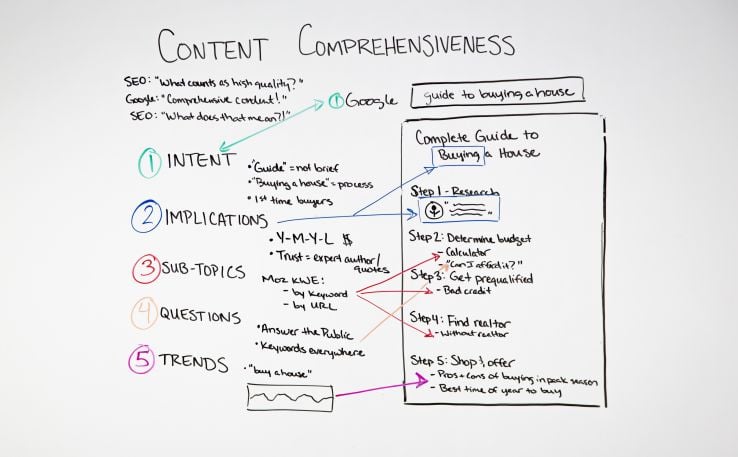 CONTENT COMPREHENSIVENESS
SEO: "What counts as high quality?"
Google: "Comprehensive content!"
SEO: "What does that mean?!"
① Google
guide to buying a house
① INTENT
• "Guide" = not brief
• "Buying a house" = process
• 1st time buyers
② IMPLICATIONS
• Y-M-Y-L $
• Trust = expert author/
quotes
③ SUB-TOPICS
Moz KWE:
- by keyword
- by URL
④ QUESTIONS
• Answer the Public
• Keywords everywhere
⑤ TRENDS
• "buy a house"
Complete Guide to
Buying a House
Step 1 - Research
Step 2: Determine budget
- Calculator
- "Can I afford it?"
Step 3: Get prequalified
- Bad credit
Step 4: Find realtor
- Without realtor
Step 5: Shop & offer
- Pros + cons of buying in peak season
- Best time of year to buy